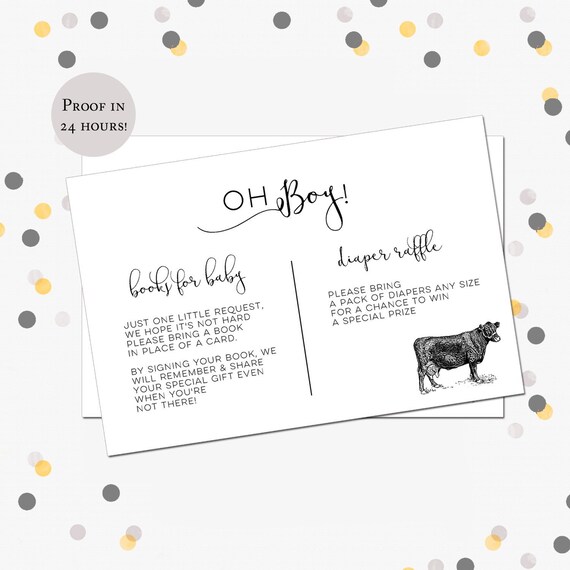 Proof in
24 hours!
OH Boy!
books for baby
JUST ONE LITTLE REQUEST,
WE HOPE IT'S NOT HARD
PLEASE BRING A BOOK
IN PLACE OF A CARD.
BY SIGNING YOUR BOOK, WE
WILL REMEMBER & SHARE
YOUR SPECIAL GIFT EVEN
WHEN YOU'RE
NOT THERE!
diaper raffle
PLEASE BRING
A PACK OF DIAPERS ANY SIZE
FOR A CHANCE TO WIN
A SPECIAL PRIZE